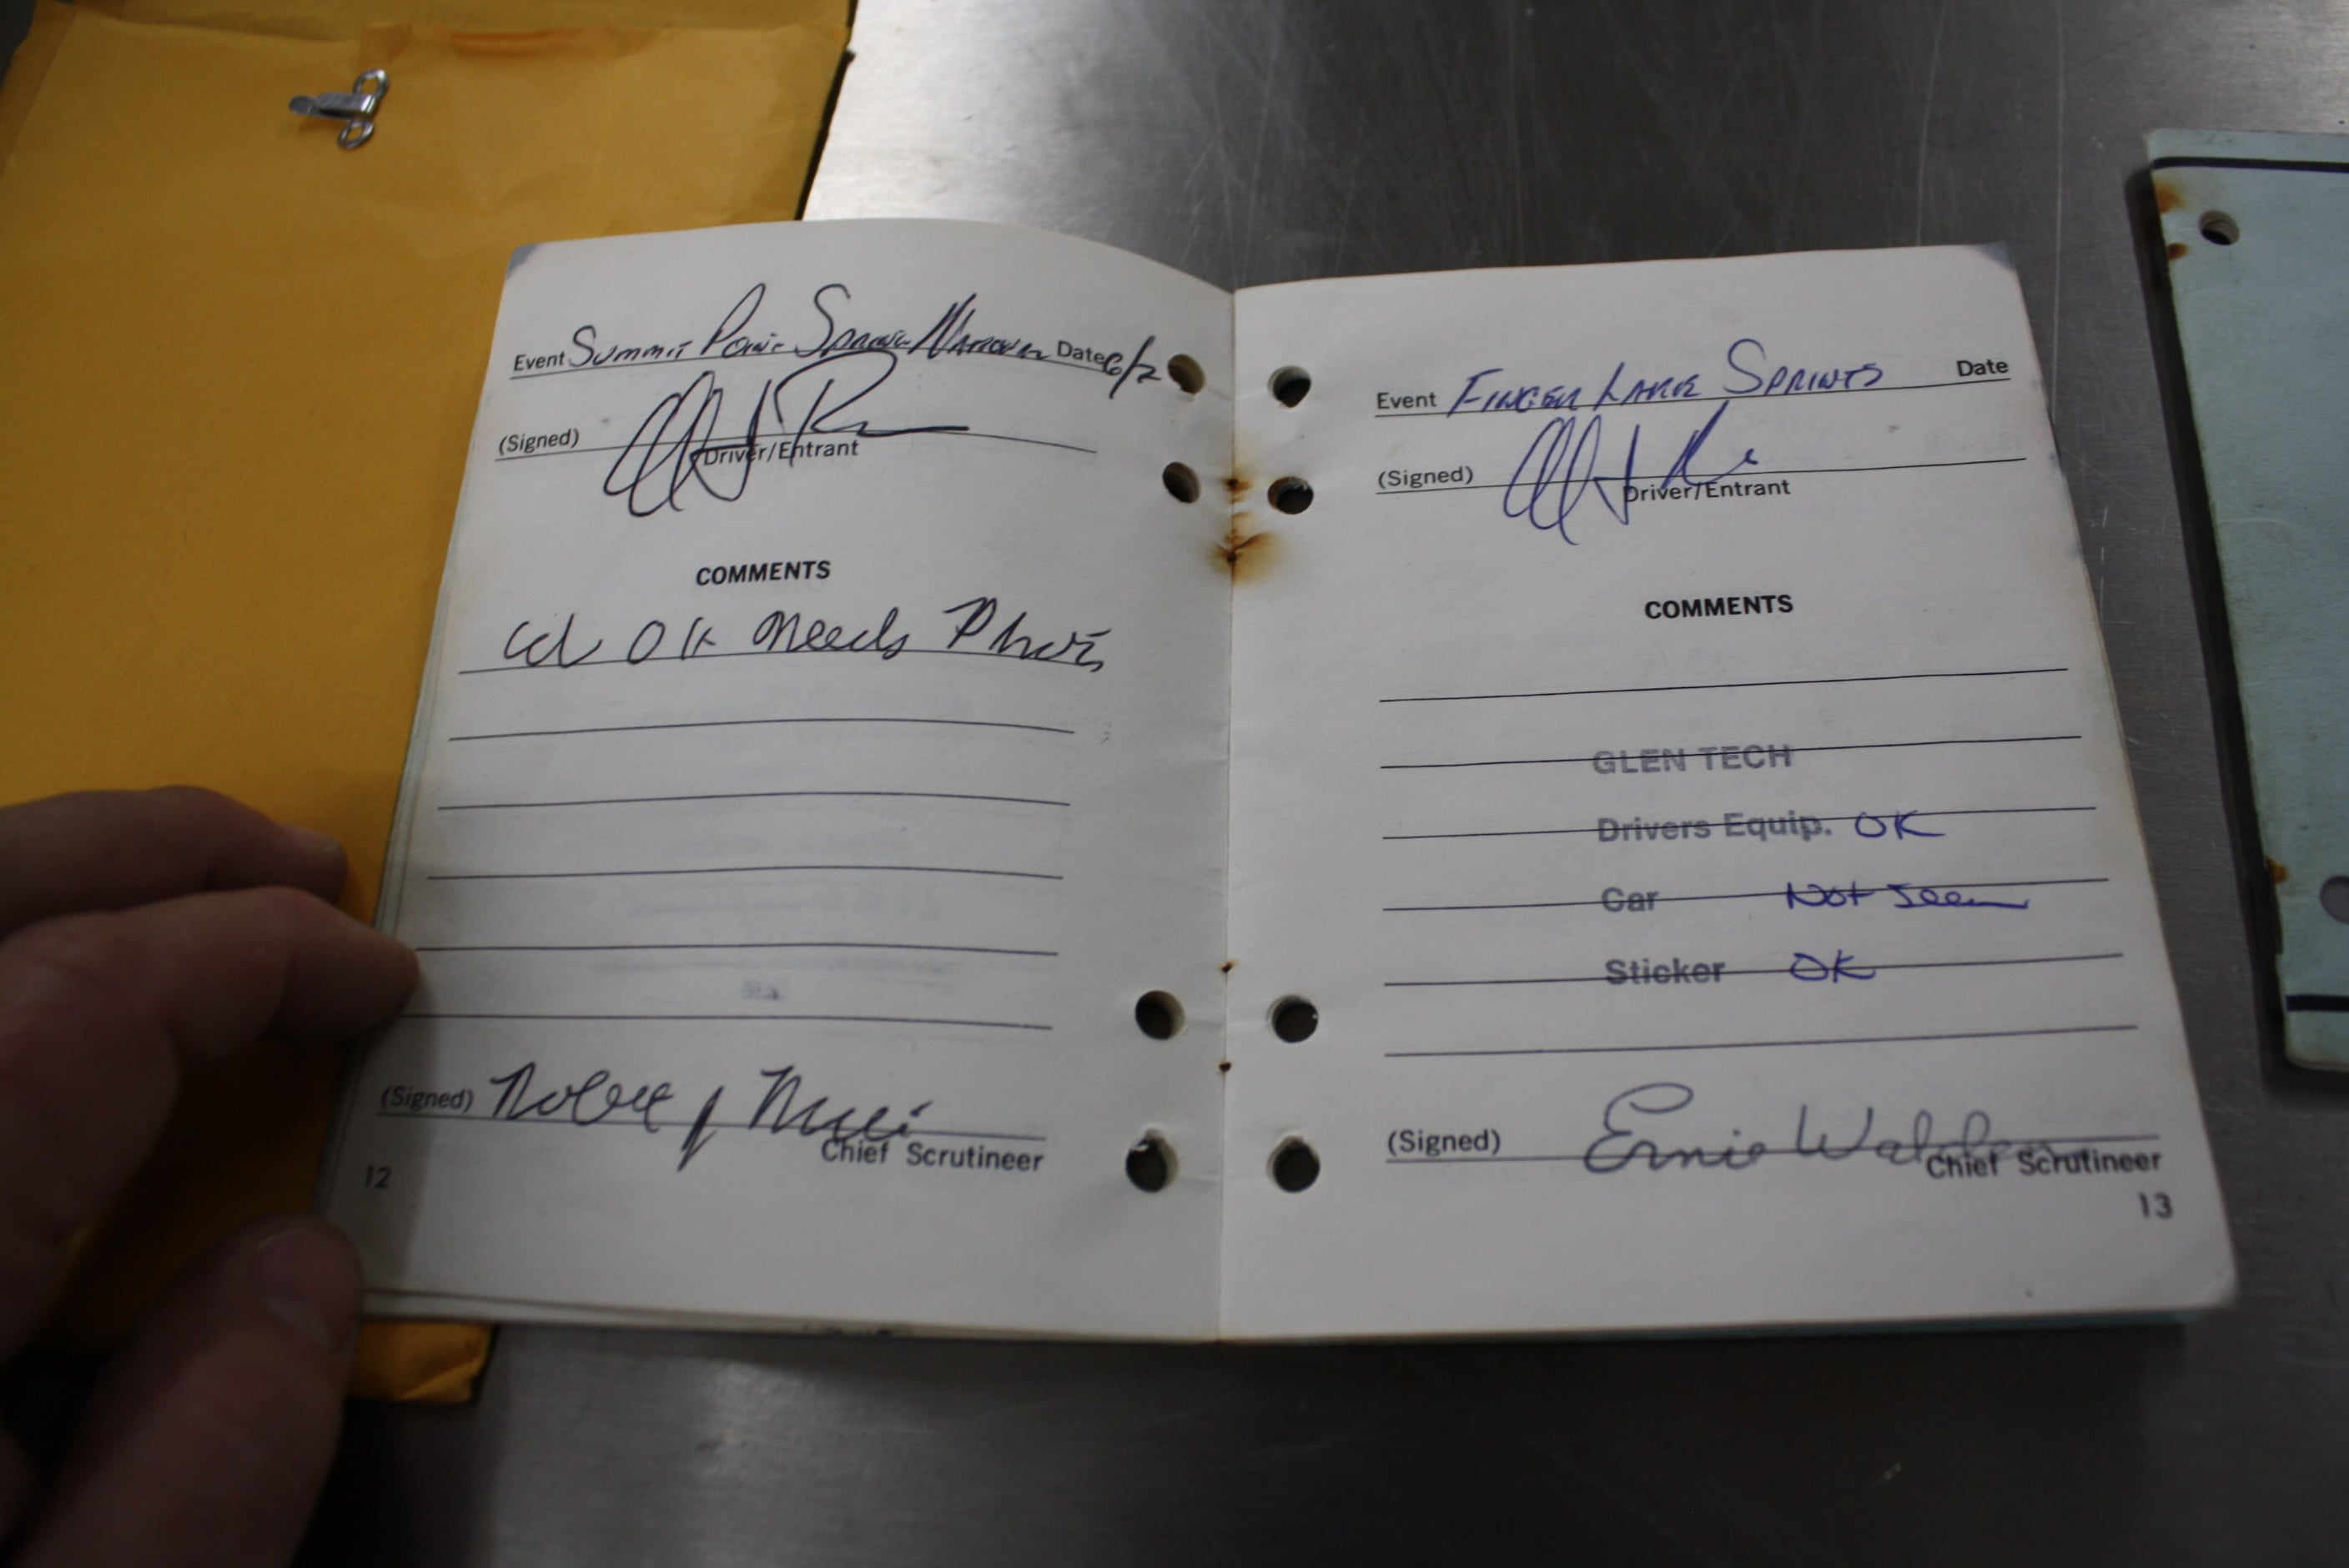 Event Summit Point Spring National Date 6/2
(Signed)
Driver/Entrant
COMMENTS
OK Needs Photo
(Signed)
Chief Scrutineer
12
Event FINGER LAKE SPRINTS Date
(Signed)
Driver/Entrant
COMMENTS
GLEN TECH
Drivers Equip. OK
Car Not Seen
Sticker OK
(Signed) Ernie
Chief Scrutineer
13